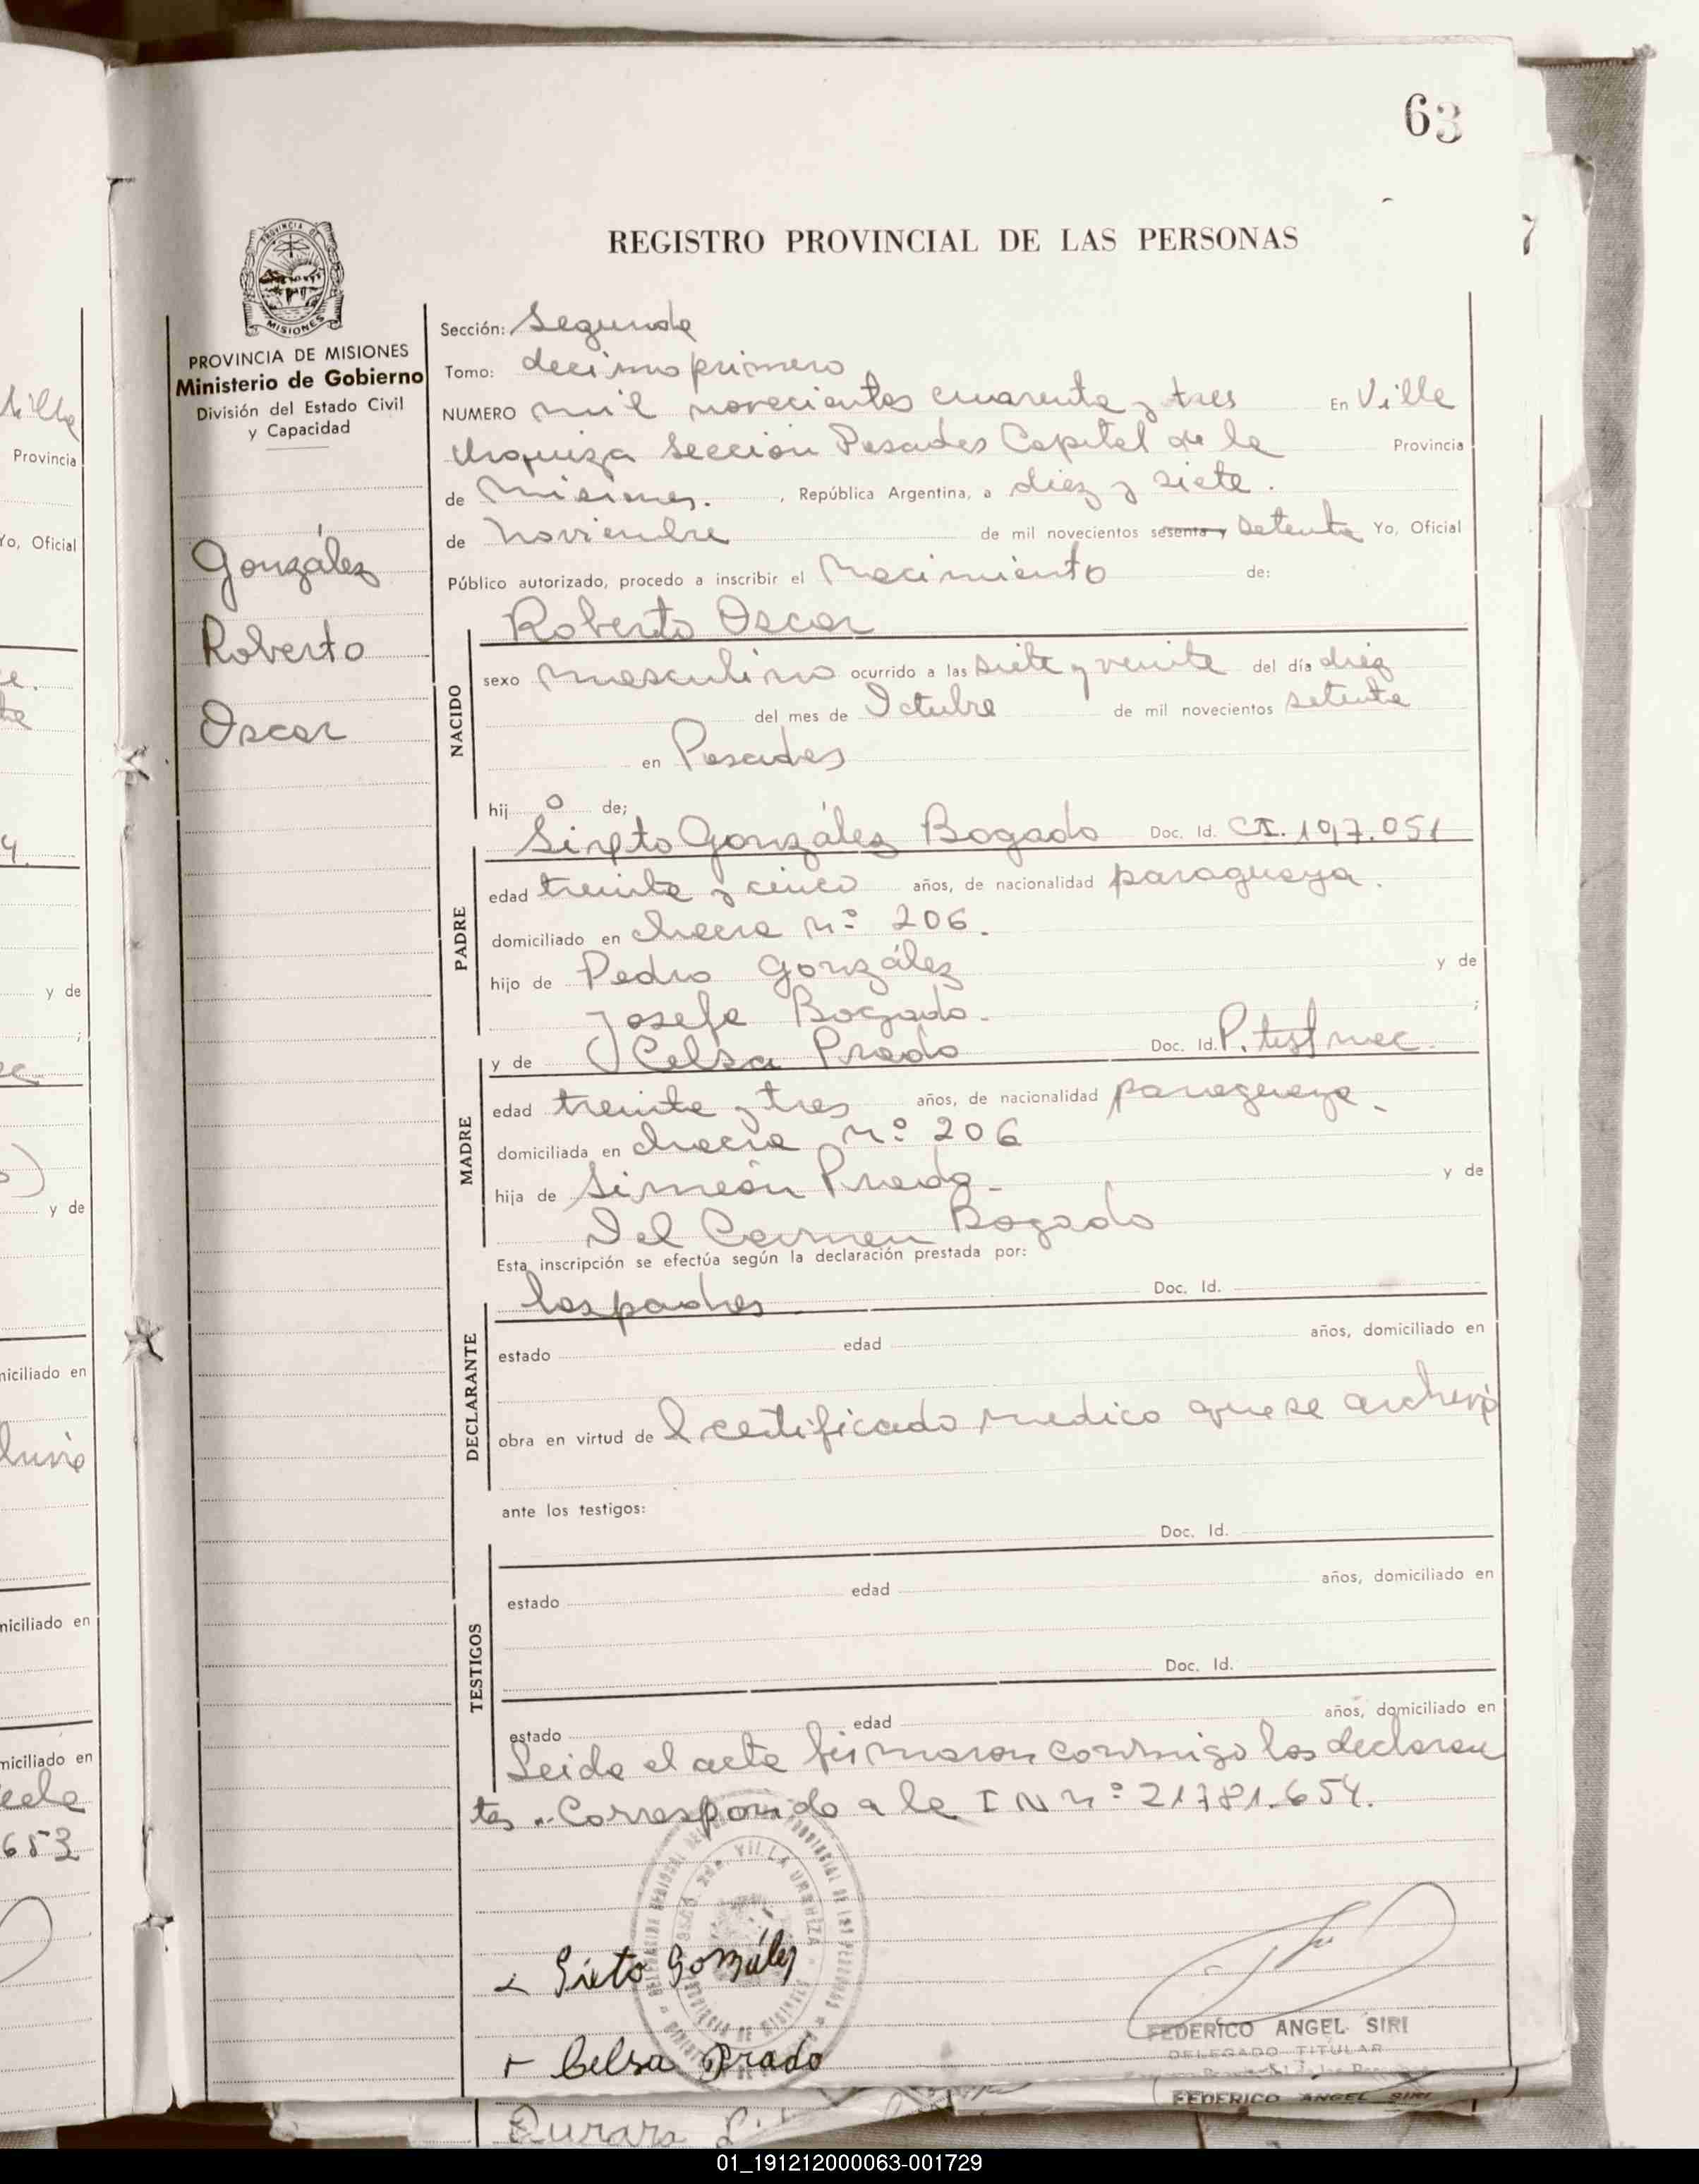 63
REGISTRO PROVINCIAL DE LAS PERSONAS
PROVINCIA DE MISIONES
Ministerio de Gobierno
División del Estado Civil
y Capacidad
González
Roberto
Oscar
Sección: Segunda
Tomo: decimo primero
NUMERO mil novecientos cuarenta y tres En Villa
Urquiza Sección Posadas Capital de la Provincia
de Misiones. , República Argentina, a diez y siete.
de Noviembre de mil novecientos sesenta y setenta Yo, Oficial
Público autorizado, procedo a inscribir el Nacimiento de:
Roberto Oscar
NACIDO
sexo masculino ocurrido a las siete y veinte del día diez
del mes de Octubre de mil novecientos setenta
en Posadas
hij o de;
Sixto González Bogado Doc. Id. CI. 197.051
PADRE
edad treinta y cinco años, de nacionalidad paraguaya.
domiciliado en chacra nº 206.
hijo de Pedro González y de
Josefa Bogado. ;
MADRE
y de Celsa Prado Doc. Id. P.
edad treinta y tres años, de nacionalidad paraguaya.
domiciliada en chacra nº 206
hija de Simeón Prado. y de
Del Carmen Bogado
Esta inscripción se efectúa según la declaración prestada por:
los padres Doc. Id.
DECLARANTE
estado edad años, domiciliado en
obra en virtud de l certificado medico que se archivó
ante los testigos:
Doc. Id.
TESTIGOS
estado edad años, domiciliado en
Doc. Id.
estado edad años, domiciliado en
Leida el acta firmaron conmigo los declaran
tes. Correspondo a la I N nº 21781.654.
Sixto González
Celsa Prado
FEDERICO ANGEL SIRI
DELEGADO TITULAR
FEDERICO ANGEL SIRI
01_191212000063-001729